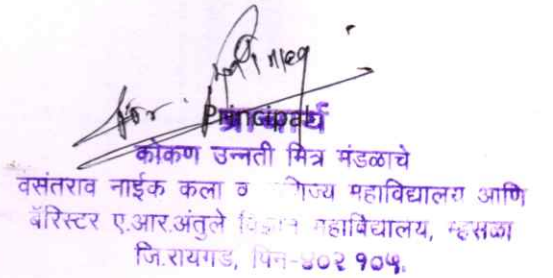 for
Principal
प्राचार्य
कोकण उन्नती मित्र मंडळाचे
वसंतराव नाईक कला व वाणिज्य महाविद्यालय आणि
बॅरिस्टर ए.आर.अंतुले विज्ञान महाविद्यालय, म्हसळा
जि.रायगड, पिन-४०२ १०५.